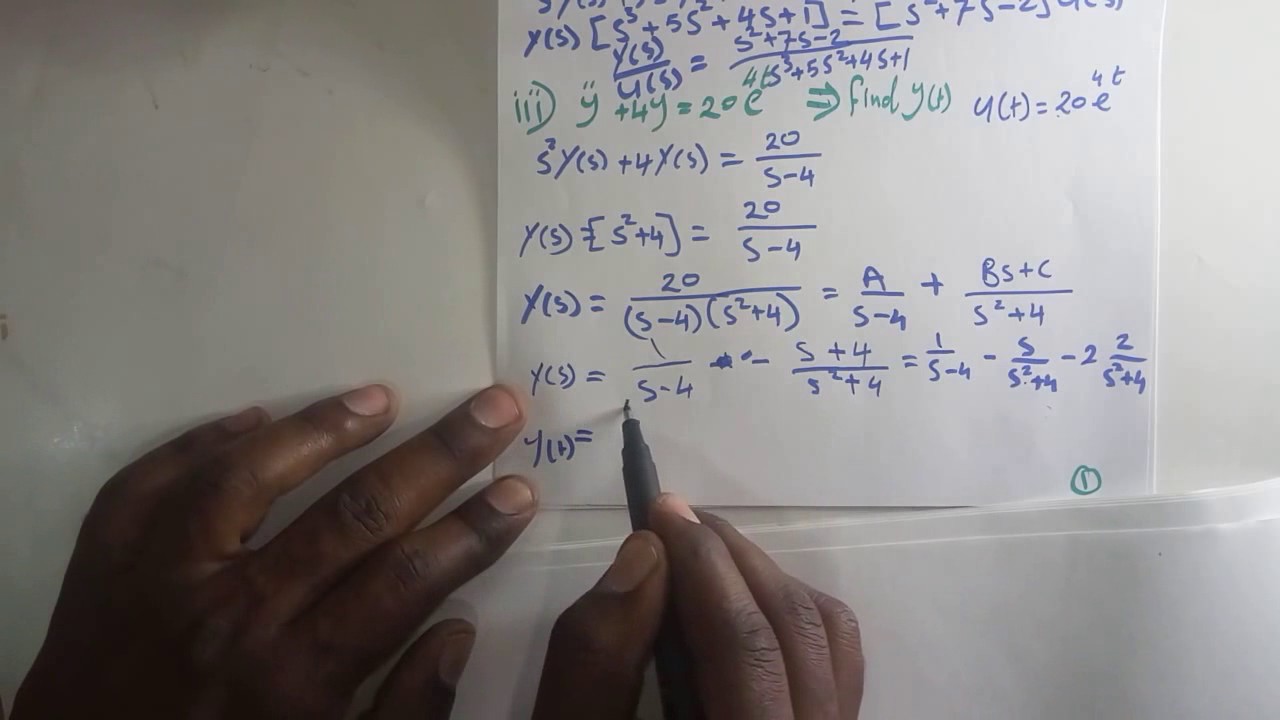 Y(s) [s³+5s²+4s+1] = [s²+7s-2] U(s)
Y(s)/U(s) = (s²+7s-2)/(s³+5s²+4s+1)
iii) ÿ +4y = 20e^4t ⇒ find y(t) u(t) = 20e^4t
s²Y(s) + 4Y(s) = 20/(s-4)
Y(s) [s²+4] = 20/(s-4)
Y(s) = 20/((s-4)(s²+4)) = A/(s-4) + (Bs+C)/(s²+4)
Y(s) = 1/(s-4) - (s+4)/(s²+4) = 1/(s-4) - s/(s²+4) - 2 2/(s²+4)
y(t) =
1